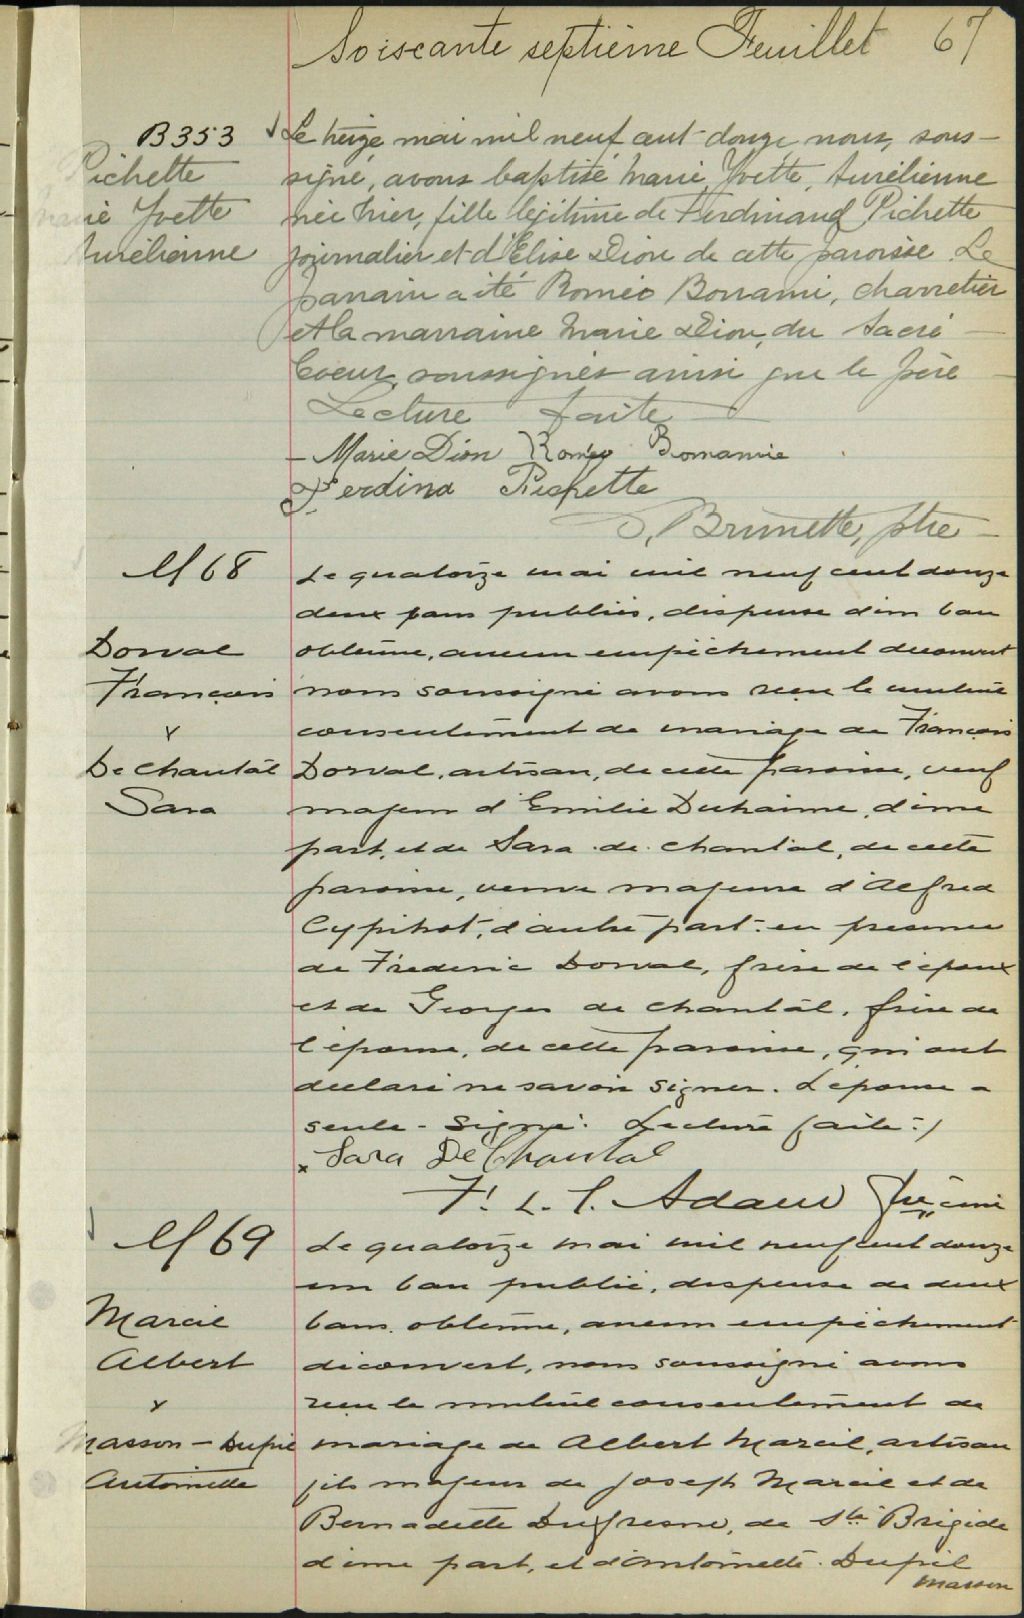 Soiscante septième Feuillet 67
B353
Pichette
Marie Yvette
Aurélienne
Le treize mai mil neuf cent douze nous, sous-
signé, avons baptisé Marie, Yvette, Aurélienne
née hier, fille légitime de Ferdinand Pichette
journalier et d'Elise Dion de cette paroisse. Le
parrain a été Roméo Bonami, charretier
et la marraine Marie Dion, du Sacré
Coeur, soussignés ainsi que le père
Lecture faite
Marie Dion Roméo Bonamie
Ferdina Pichette
Brunette, ptre
M 68
Dorval
François
x
De Chantal
Sara
Le quatorze mai mil neuf cent douze
deux bans publiés, dispense d'un ban
obtenue, aucun empêchement découvert
nous soussigné avons reçu le mutuel
consentement de mariage de François
Dorval, artisan, de cette paroisse, veuf
majeur d'Emilie Duhaime, d'une
part, et de Sara de Chantal, de cette
paroisse, veuve majeure d'Alfred
Cypihot, d'autre part: en présence
de Frederic Dorval, frère de l'époux
et de Georges de Chantal, frère de
l'épouse, de cette paroisse, qui ont
déclaré ne savoir signer. L'épouse a
seule signé. Lecture faite.
x Sara De Chantal
F. L. T. Adam Ptre curé
M 69
Marcil
Albert
x
Masson-Dupil
Antoinette
Le quatorze mai mil neuf cent douze
un ban publié, dispense de deux
bans obtenue, aucun empêchement
découvert, nous soussigné avons
reçu le mutuel consentement de
mariage de Albert Marcil, artisan
fils majeur de Joseph Marcil et de
Bernadette Dufresne, de Ste Brigide
d'une part, et d'Antoinette Dupil
Masson